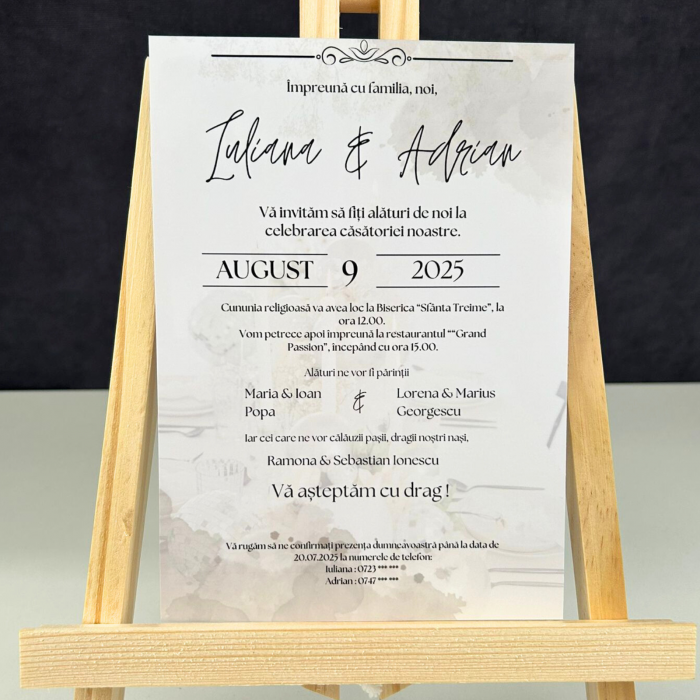 Împreună cu familia, noi,
Iuliana & Adrian
Vă invităm să fiți alături de noi la
celebrarea căsătoriei noastre.
AUGUST 9 2025
Cununia religioasă va avea loc la Biserica "Sfânta Treime", la
ora 12.00.
Vom petrece apoi împreună la restaurantul ""Grand
Passion", începând cu ora 15.00.
Alături ne vor fi părinții
Maria & Ioan
Popa
&
Lorena & Marius
Georgescu
Iar cei care ne vor călăuzi pașii, dragii noștri nași,
Ramona & Sebastian Ionescu
Vă așteptăm cu drag !
Vă rugăm să ne confirmați prezența dumneavoastră până la data de
20.07.2025 la numerele de telefon:
Iuliana : 0723 *** ***
Adrian : 0747 *** ***